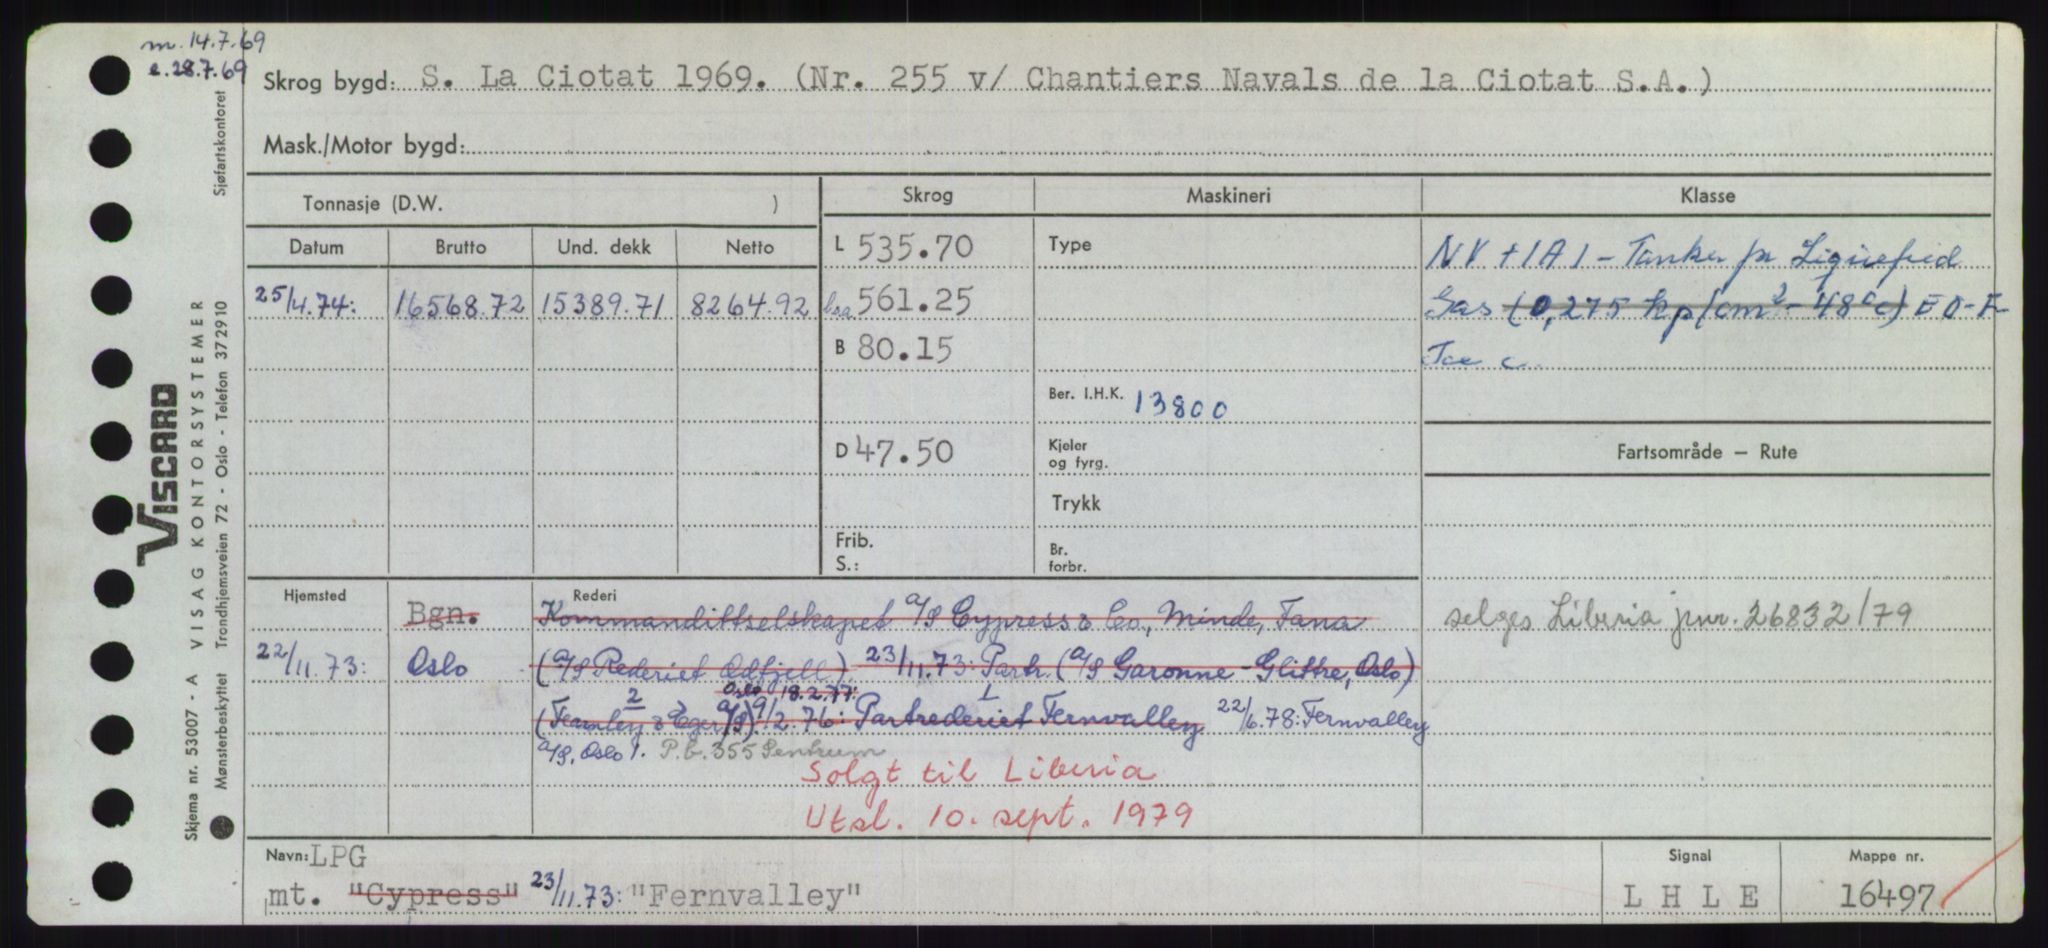 m. 14.7.69
e. 28.7.69
Skrog bygd: S. La Ciotat 1969. (Nr. 255 v/ Chantiers Navals de la Ciotat S.A.)
Mask./Motor bygd:
Tonnasje (D.W. )
Skrog
Maskineri
Klasse
Datum Brutto Und. dekk Netto
L 535.70
Type
NV +1A1 - Tanker for Liquefied
25/4.74: 16568.72 15389.71 8264.92
boa 561.25
Gas (0,275 kp/cm2 - 48°c) EO-F
B 80.15
Ice C.
Ber. I.H.K. 13800
D 47.50
Kjeler
og fyrg.
Fartsområde — Rute
Trykk
Frib.
S.:
Br.
forbr.
Hjemsted
Rederi
Bgn.
Kommandittselskapet A/S Cypress & Co., Minde, Fana
selges Liberia jnr. 26832/79
22/11.73: Oslo
(A/S Rederiet Odfjell) 23/11.73: Partr. (A/S Garonne - Glittre, Oslo)
Oslo 18.2.77:
(Fearnley & Eger A/S) 9/2.76: Partrederiet Fernvalley 22/6.78: Fernvalley
A/S, Oslo 1. P.b. 355 Sentrum
Solgt til Liberia
Utsl. 10. sept. 1979
Navn: LPG
mt. "Cypress" 23/11.73: "Fernvalley"
Signal
L H L E
Mappe nr.
16497
Sjøfartskontoret
VISCARD
VISAG KONTORSYSTEMER
Trondhjemsveien 72 - Oslo - Telefon 372910
Skjema nr. 53007 - A
Mønsterbeskyttet